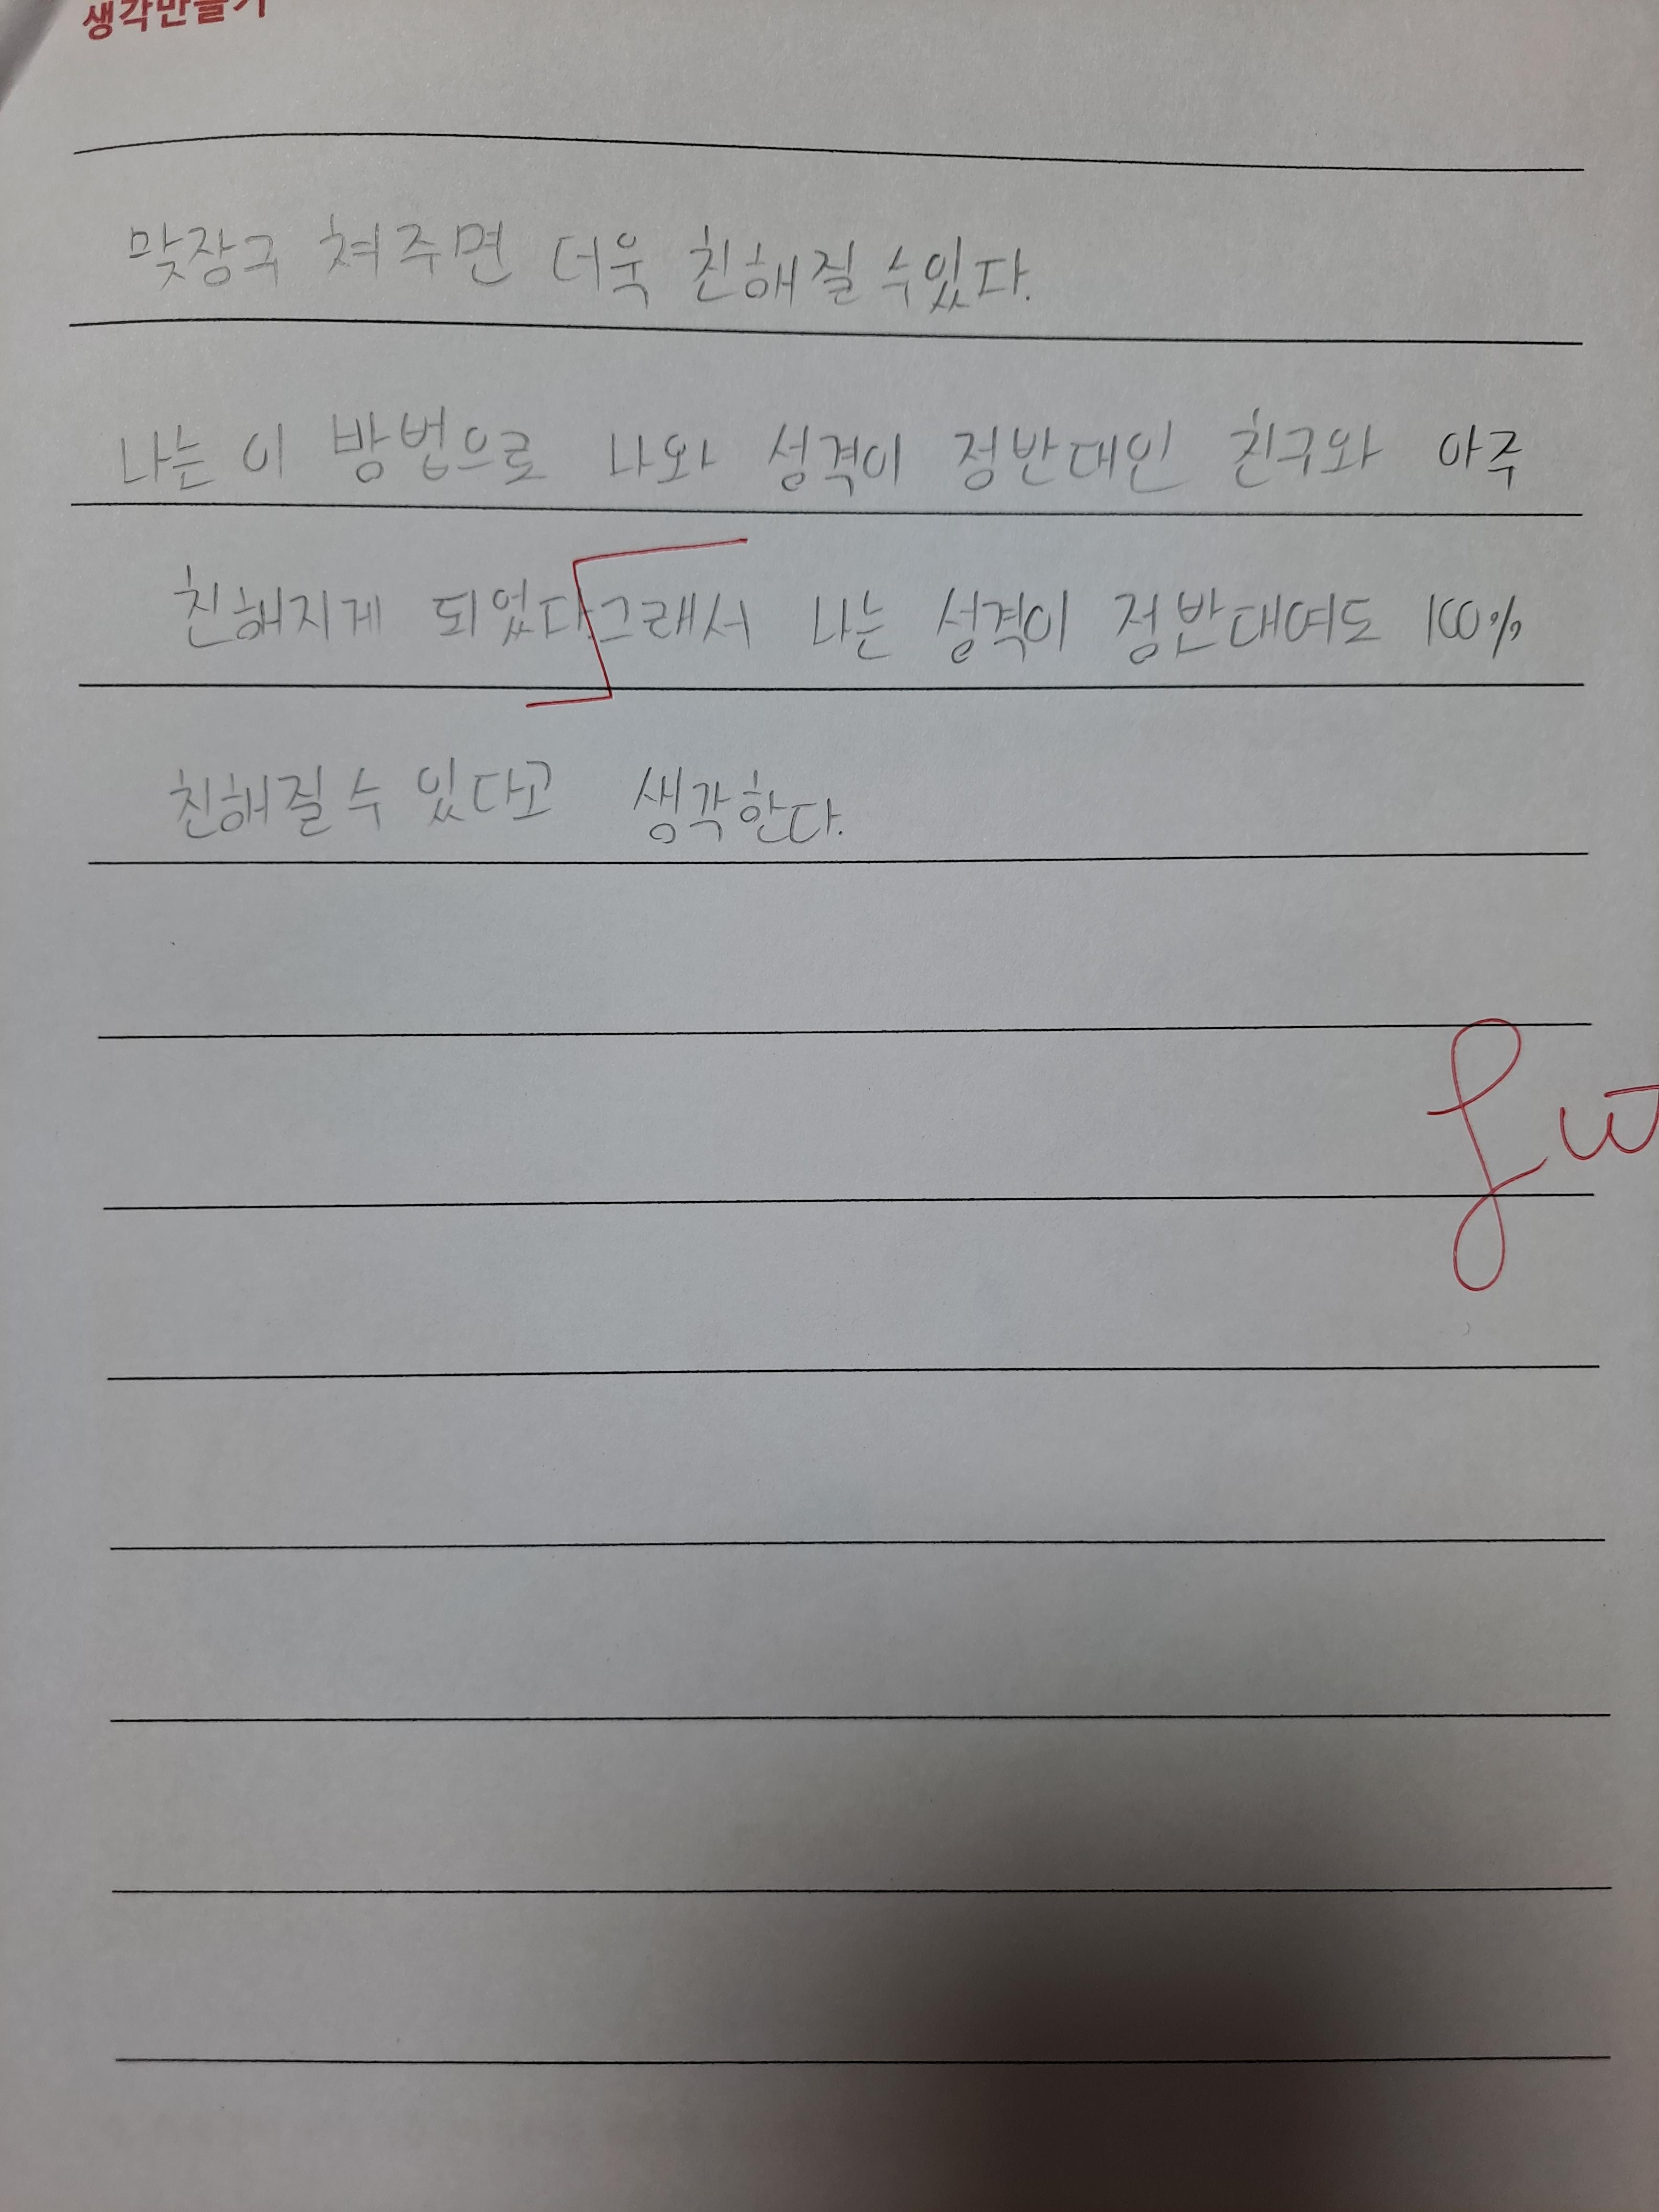 생각만들기
맞장구 쳐주면 더욱 친해질 수있다.
나는 이 방법으로 나와 성격이 정반대인 친구와 아주
친해지게 되었다.그래서 나는 성격이 정반대여도 100%
친해질 수 있다고 생각한다.